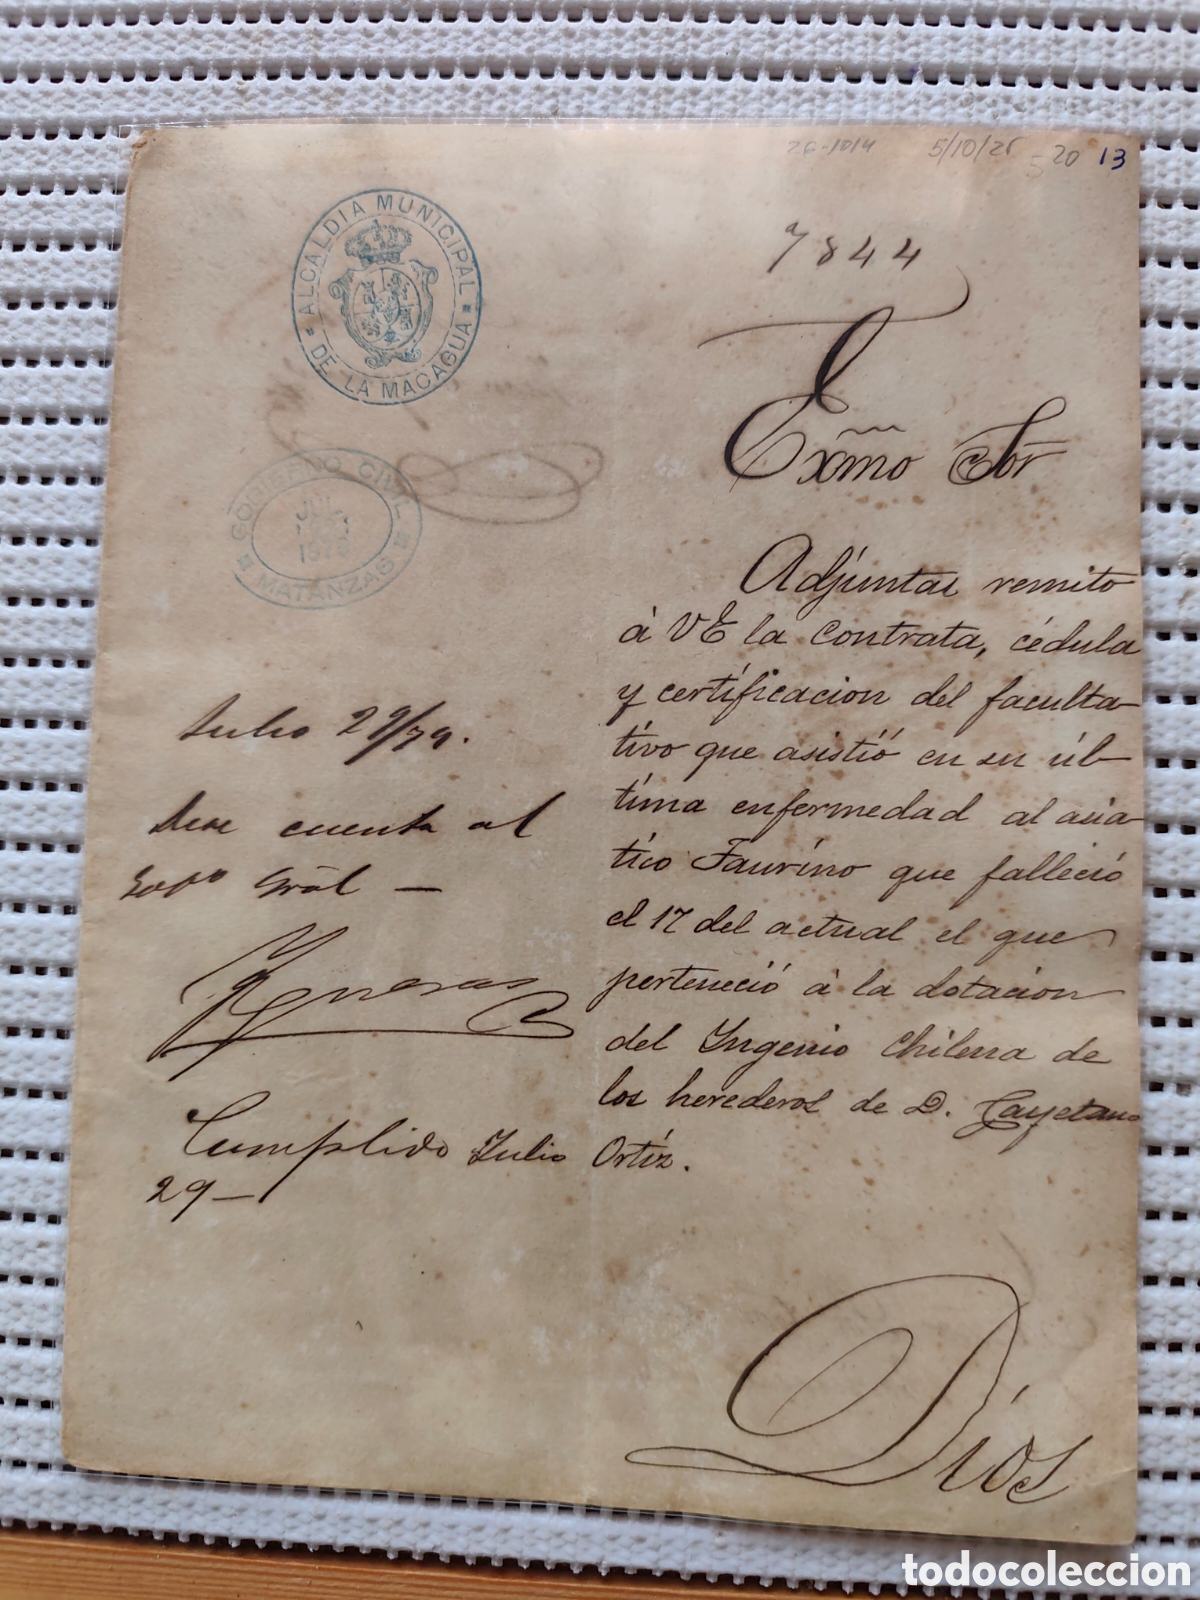 5/10/25
20 13
7844
ALCALDIA MUNICIPAL
DE LA MACAGUA
Exmo Sor
GOBIERNO CIVIL
JUL
MATANZAS
Adjuntas remito
á VE la contrata, cédula
y certificacion del faculta-
tivo que asistió en su úl-
tima enfermedad al asia-
tico Faurino que falleció
el 17 del actual el que
perteneció á la dotacion
del Ingenio Chilena de
los herederos de D. Cayetano
Ortiz.
Julio 29/79.
Dese cuenta al
Gobo Gral —
Cumplido Julio
29 —
Dios
todocoleccion